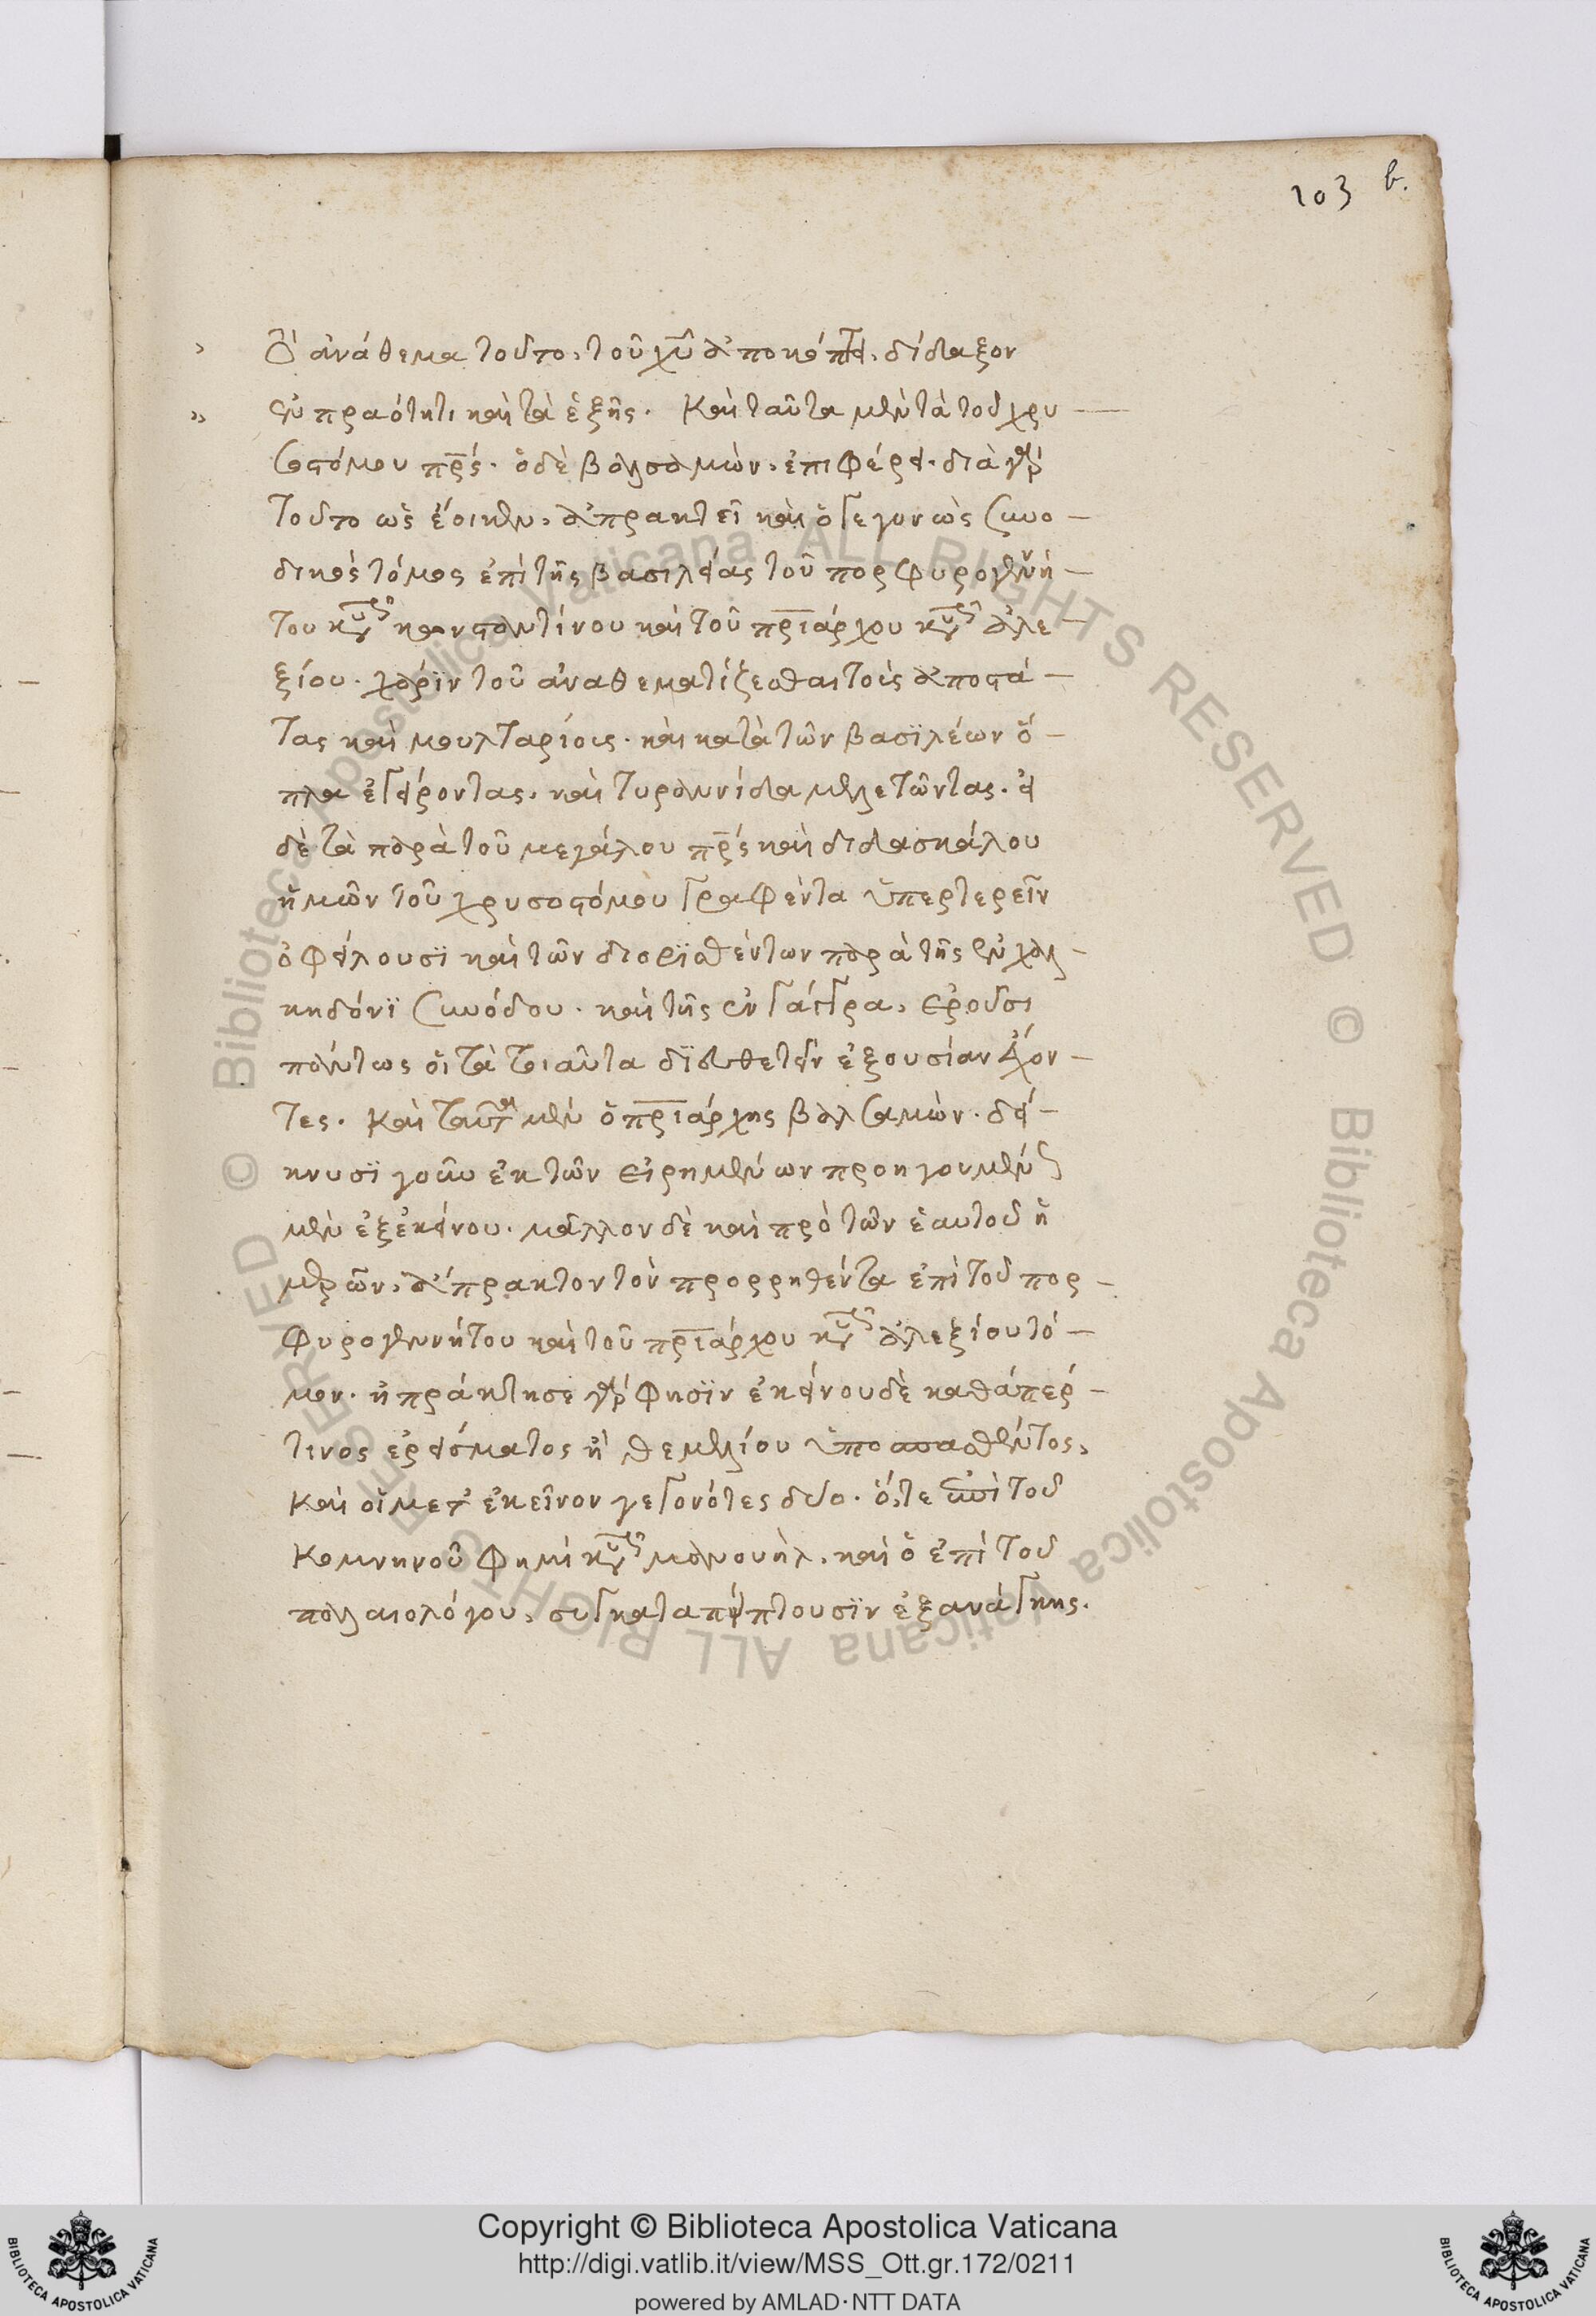 103 b.
Ὁ ἀνάθεμα τοῦτο, τοῦ χυ ἀποκόπτει. δίδαξον
ἐν πραότητι καὶ τὰ ἑξῆς. Καὶ ταῦτα μὲν τὰ τοῦ χρυ
σοστόμου πρς. ὁ δὲ βαλσαμὼν, ἐπιφέρει. διὰ γὰρ
τοῦτο ὡς ἔοικεν, ἀπρακτεῖ καὶ ὁ γεγονὼς συνο
δικὸς τόμος ἐπὶ τῆς βασιλείας τοῦ πορφυρογεννή
του κυροῦ κωνσταντίνου καὶ τοῦ πριάρχου κυροῦ ἀλε
ξίου. χάριν τοῦ ἀναθεματίζεσθαι τοὺς ἀποστά
τας καὶ μουλταρίους. καὶ κατὰ τῶν βασιλέων ὅ
πλα ἐγείροντας, καὶ τυραννίδα μελετῶντας. εἰ
δὲ τὰ παρὰ τοῦ μεγάλου πρς καὶ διδασκάλου
ἡμῶν τοῦ χρυσοστόμου γραφέντα ὑπερτερεῖν
ὀφείλουσι καὶ τῶν διορισθέντων παρὰ τῆς ἐν χαλ
κηδόνι συνόδου. καὶ τῆς ἐν γάγγρα, ἐροῦσι
πάντως οἱ τὰ τοιαῦτα διευθετεῖν ἐξουσίαν ἔχον
τες. Καὶ ταῦτα μὲν ὁ πριάρχης βαλσαμὼν. δεί
κνυσι γοῦν ἐκ τῶν εἰρημένων προηγουμένως
μὲν ἐξ ἐκείνου. μᾶλλον δὲ καὶ πρὸ τῶν ἑαυτοῦ ἡ
μερῶν, ἄπρακτον τὸν προρρηθέντα ἐπὶ τοῦ πορ
φυρογεννήτου καὶ τοῦ πριάρχου κυροῦ ἀλεξίου τό
μον. ἠπράκτησε γάρ φησιν ἐκείνου δὲ καθάπερ
τινος ἐρείσματος ἢ θεμελίου ὑποσπασθέντος,
καὶ οἱ μετ' ἐκεῖνον γεγονότες δύο. ὅ,τε ἐπὶ τοῦ
Κομνηνοῦ φημὶ κυροῦ μανουὴλ, καὶ ὁ ἐπὶ τοῦ
παλαιολόγου, συγκαταπίπτουσιν ἐξ ανάγκης.
Copyright © Biblioteca Apostolica Vaticana
http://digi.vatlib.it/view/MSS_Ott.gr.172/0211
powered by AMLAD·NTT DATA
BIBLIOTECA APOSTOLICA VATICANA
BIBLIOTECA APOSTOLICA VATICANA
© Biblioteca Apostolica Vaticana ALL RIGHTS RESERVED © Biblioteca Apostolica Vaticana ALL RIGHTS RESERVED